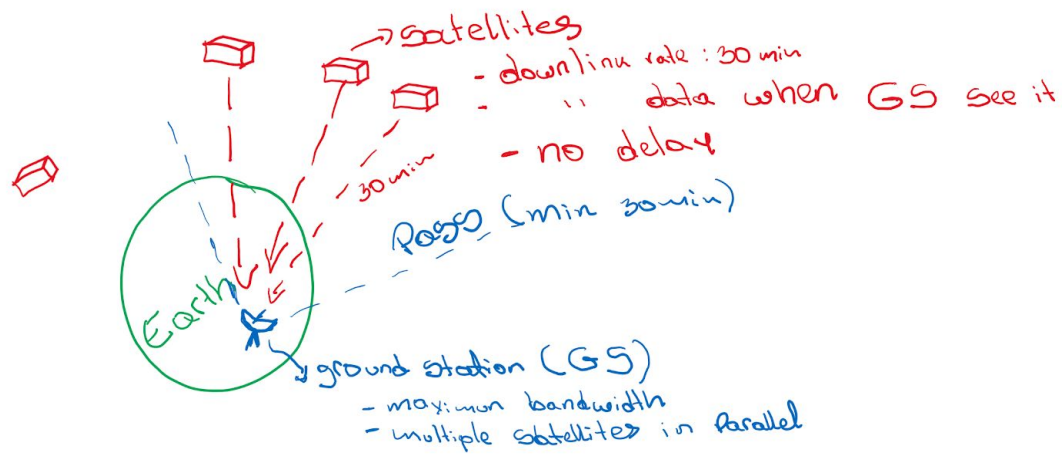 satellites
- downlink rate : 30 min
- " data when GS see it
- no delay
30min
Pass (min 30min)
Earth
ground station (GS)
- maximun bandwidth
- multiple satellites in Parallel